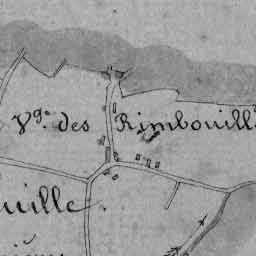 Vge. des Rimbouill
uille.